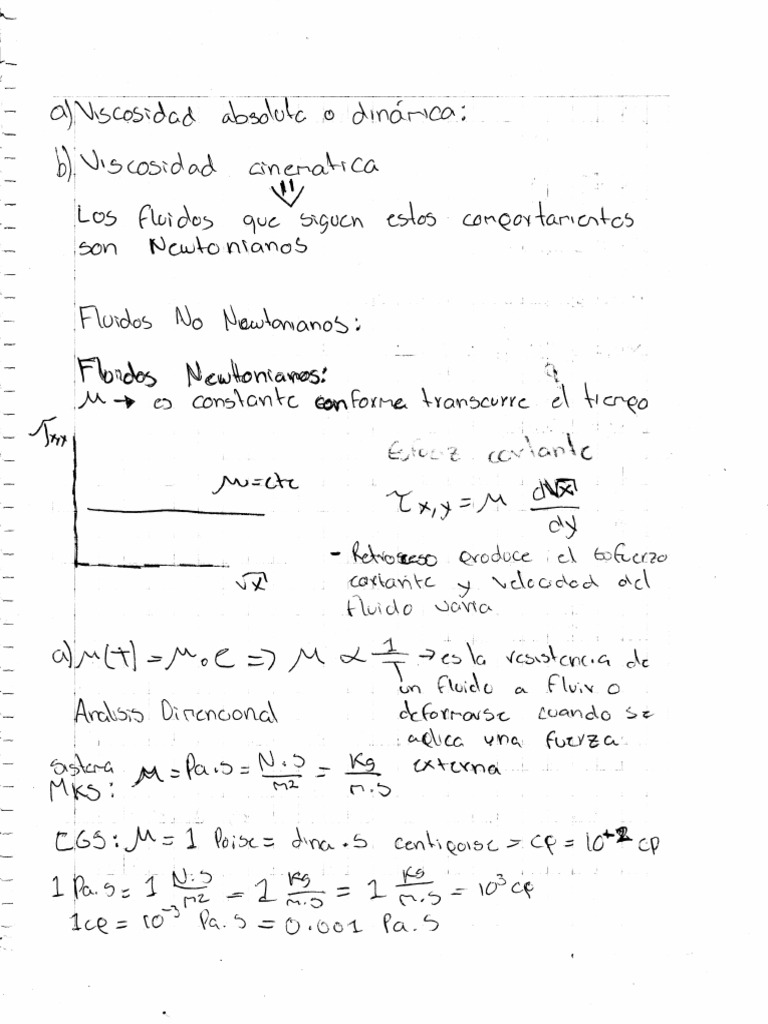 a) Viscosidad absoluta o dinámica:
b) Viscosidad cinematica
Los fluidos que siguen estos comportamientos
son Newtonianos
Fluidos No Newtonianos:
Fluidos Newtonianos:
μ → es constante conforme transcurre el tiempo
μ = cte
Esfuerz cortante
τx,y = μ d√x / dy
√x
- Retroceso produce el esfuerzo
cortante y velocidad del
fluido varia
a) μ(T) = μ₀e ⇒ μ ∝ 1/T → es la resistencia de
un fluido a fluir o
Analisis Dimencional deformarse cuando se
aplica una fuerza
externa
Sistema MKS: μ = Pa.s = N.s/m2 = Kg/m.s
CGS: μ = 1 Poise = dina.s centipoise = cp = 10⁻² cp
1 Pa.s = 1 N.s/m2 = 1 Kg/m.s = 1 Kg/m.s = 10³ cp
1cp = 10⁻³ Pa.s = 0.001 Pa.s